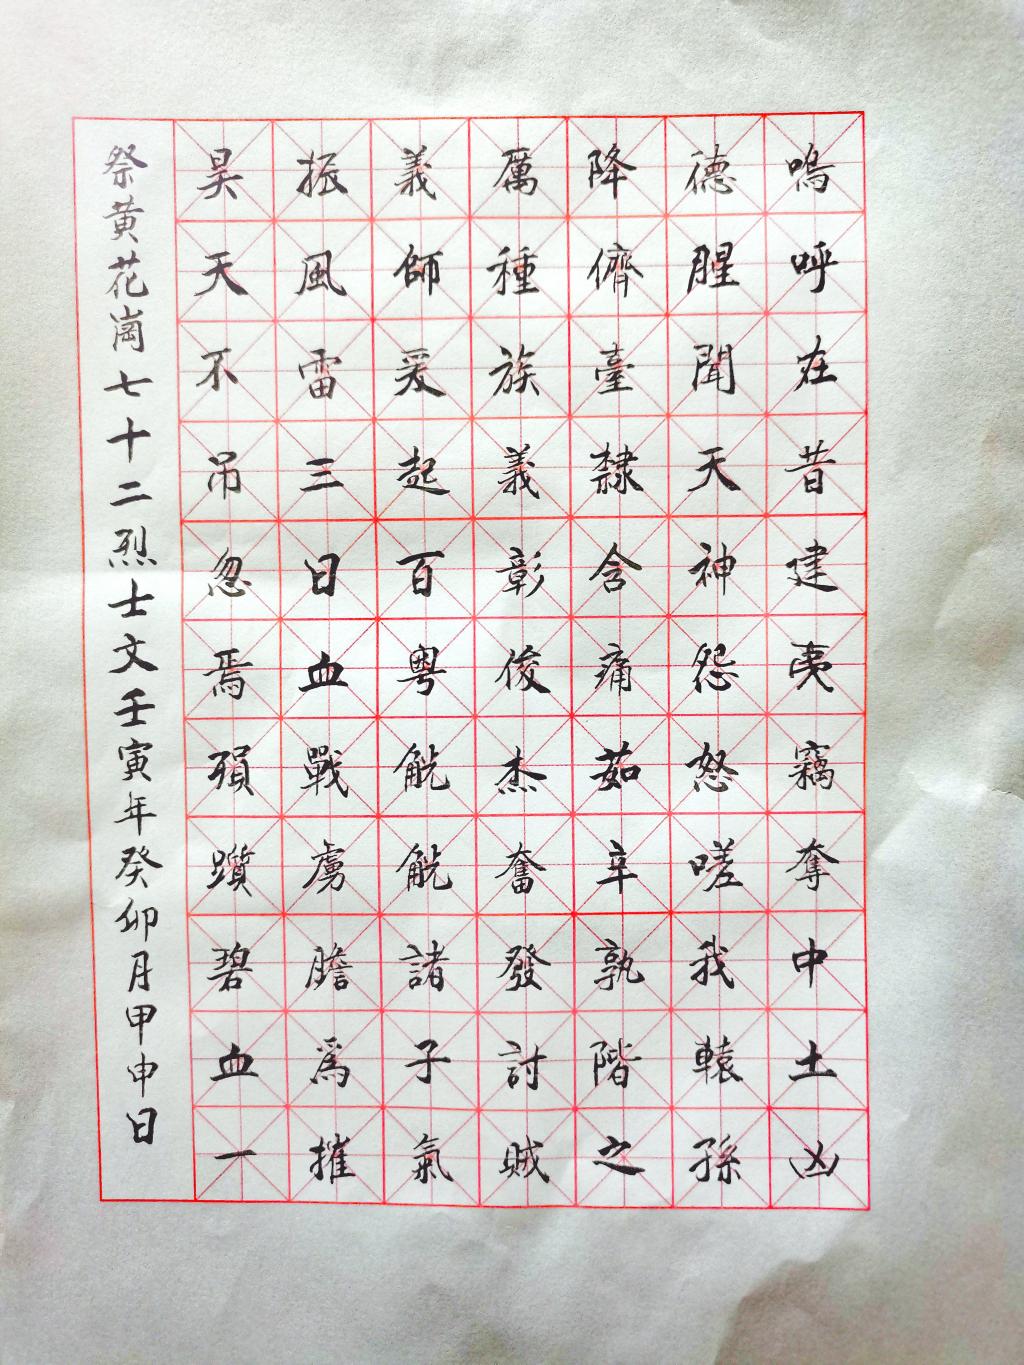 嗚呼在昔建夷竊奪中土凶
德腥聞天神怨怒嗟我轅孫
降儕臺隸含痛茹辛孰階之
厲種族義彰俊杰奮發討賊
義師爰起百粵觥觥諸子氣
振風雷三日血戰虜膽爲摧
昊天不吊忽焉殞躓碧血一
祭黃花崗七十二烈士文壬寅年癸卯月甲申日